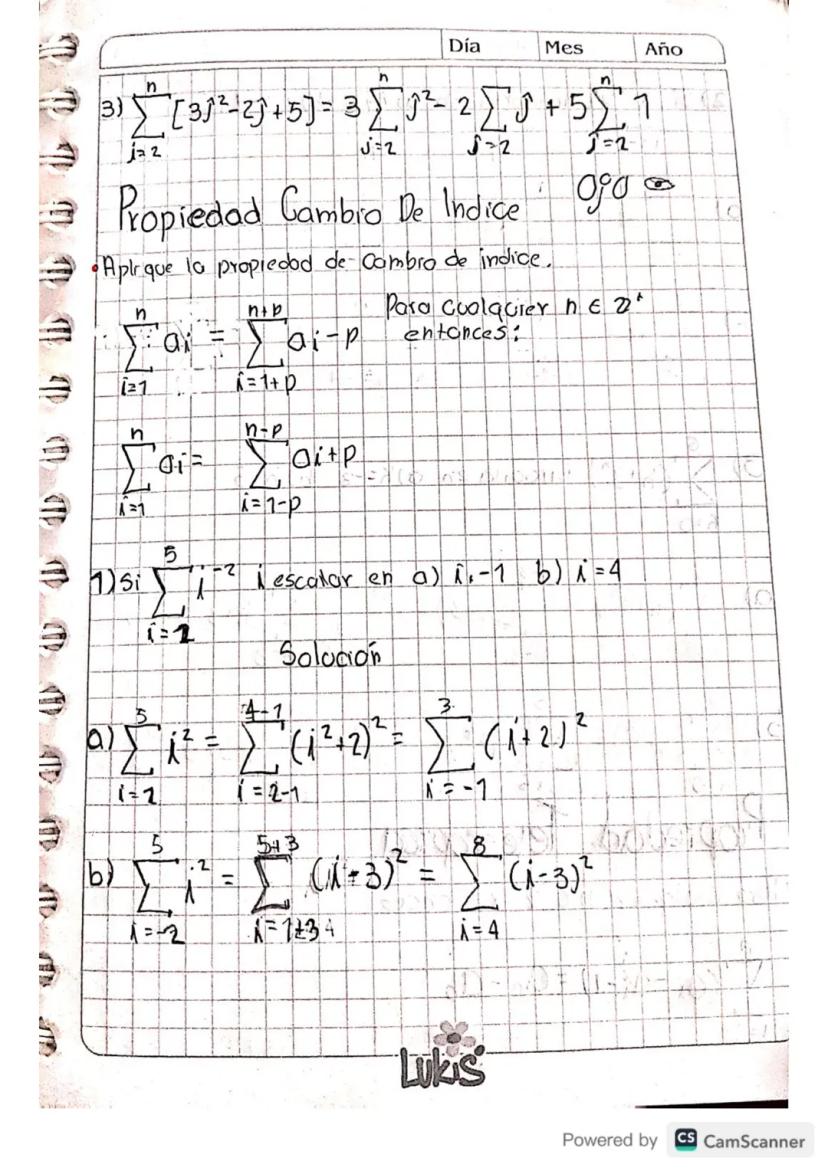 Día Mes Año
3) \sum_{j=2}^{n} [3j²-2j+5] = 3 \sum_{j=2}^{n} j² - 2 \sum_{j=2} j + 5 \sum_{j=2}^{n} 1
Propiedad Cambio De Indice Ojo
• Aplique la propiedad de cambio de indice.
\sum_{i=1}^{n} ai = \sum_{i=1+p}^{n+p} ai-p Para cualquier n ∈ Z⁺
entonces:
\sum_{i=1}^{n} ai = \sum_{i=1-p}^{n-p} ai+p
1) Si \sum_{i=1}^{5} i^{-2} i escalar en a) i.-1 b) i=4
Solución
a) \sum_{i=1}^{5} i² = \sum_{i=2-1}^{4-1} (i²+2)² = \sum_{i=-1}^{3} (i+2)²
b) \sum_{i=-2}^{5} i² = \sum_{i=1+3 4}^{5+3} (i-3)² = \sum_{i=4}^{8} (i-3)²
Lukis
Powered by CS CamScanner